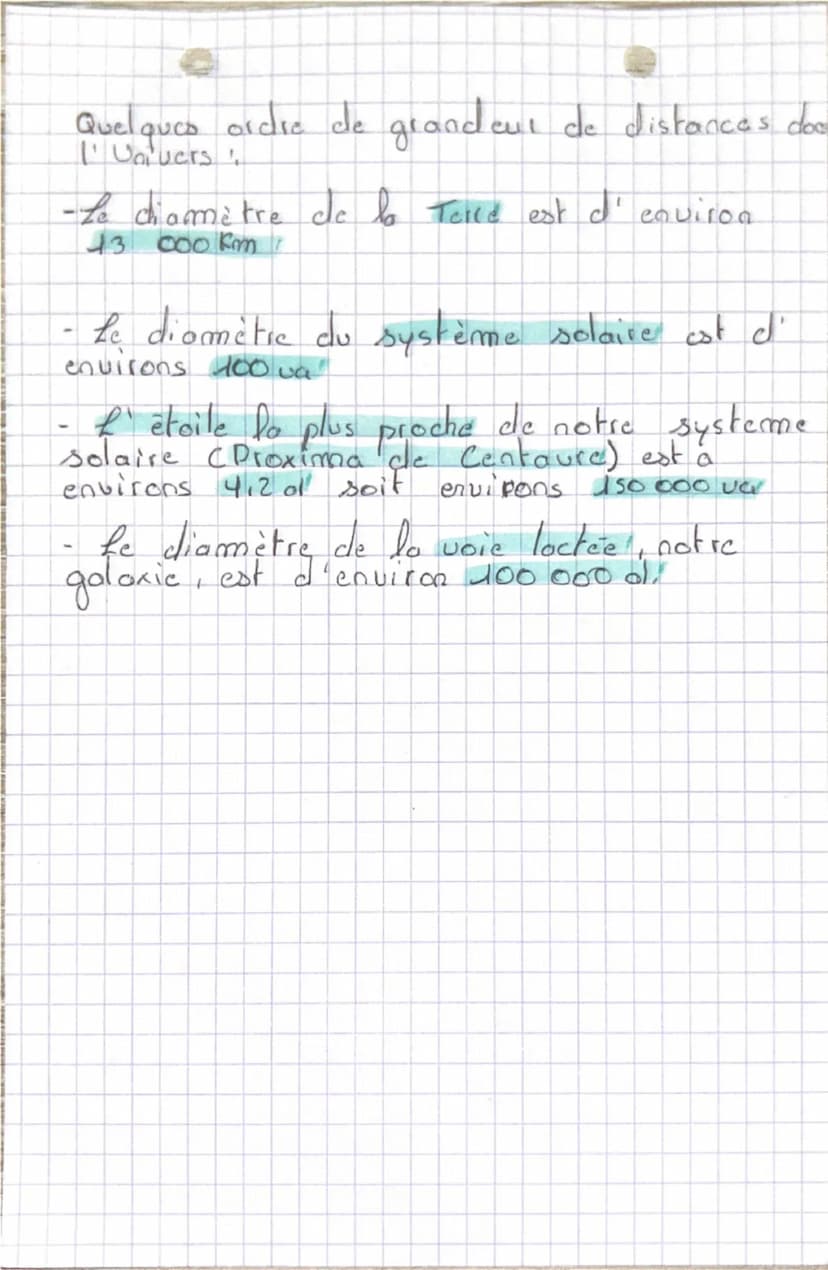 Quelques ordre de grandeur de distances dans
l'Univers :
- Le diamètre de la Terre est d'environ
13 000 Km
- Le diamètre du système solaire est d'
environs 100 ua
- L'étoile la plus proche de notre systeme
solaire (Proxima de Centaure) est à
environs 4,2 al soit environs 150 000 ua
- Le diamètre de la voie lactée, notre
galaxie, est d'environ 100 000 al.